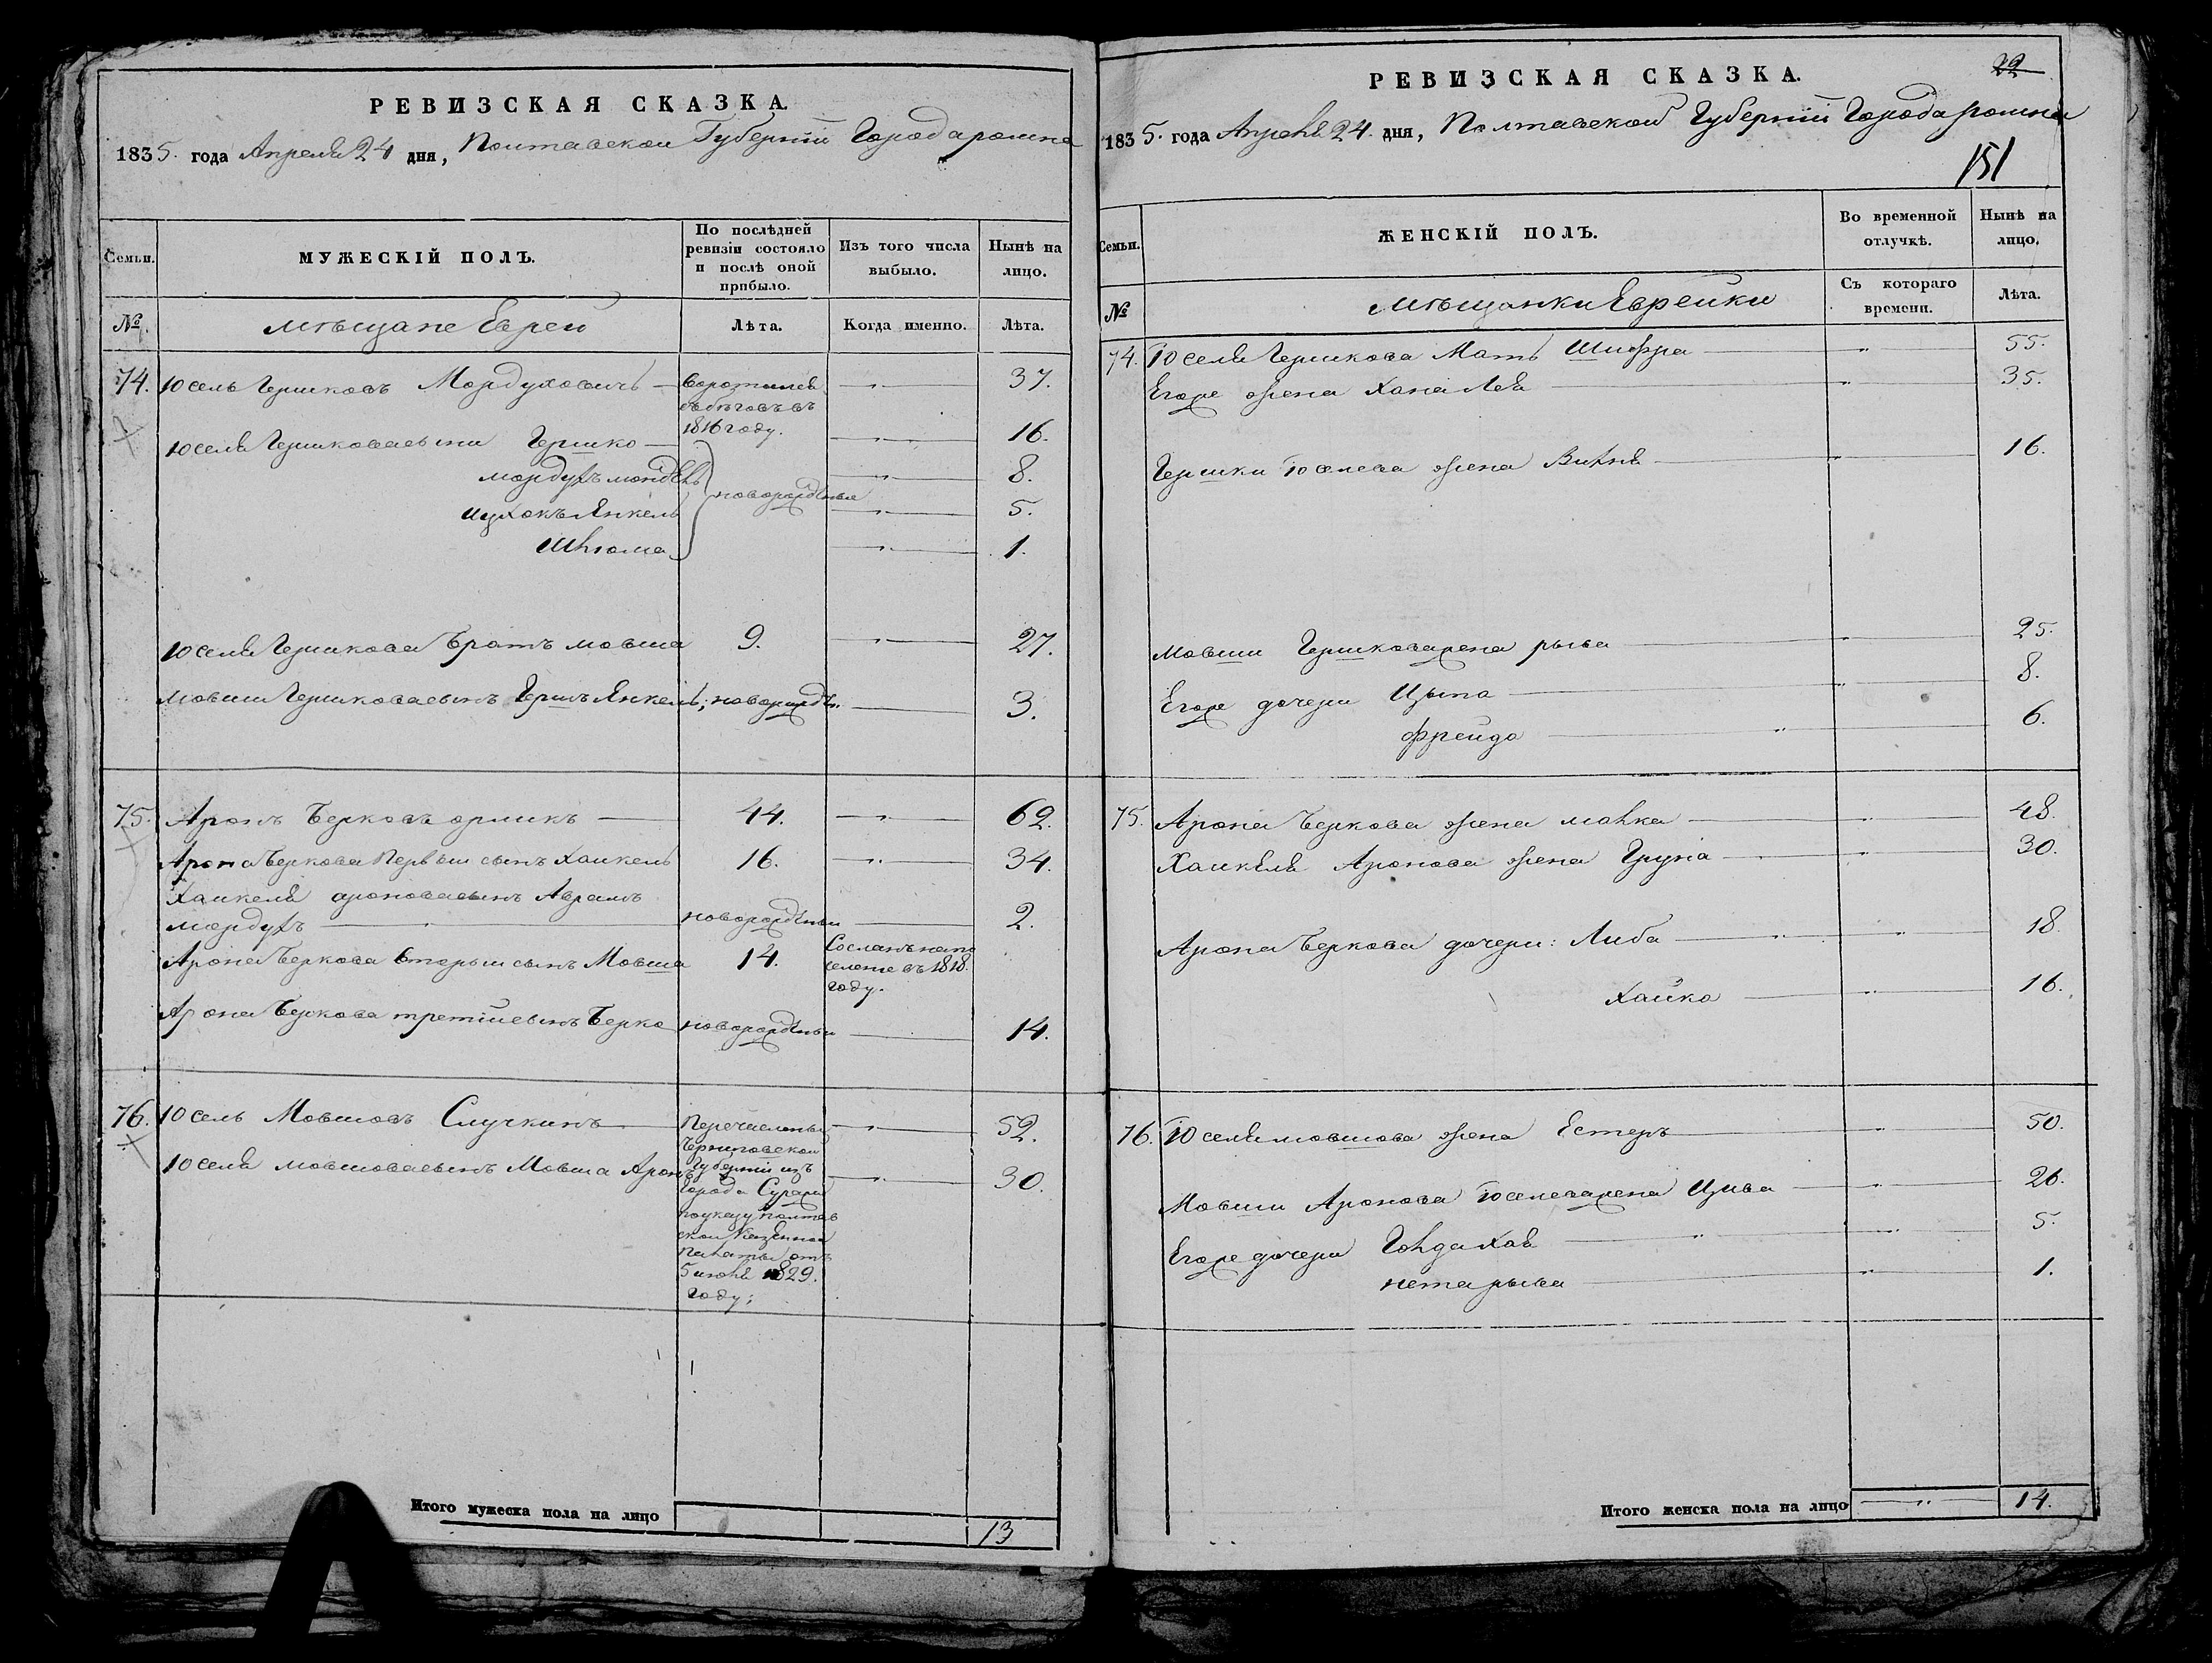 РЕВИЗСКАЯ СКАЗКА.
1835. года Апреля 24 дня, Полтавской Губернiи Города ромна
Семьи.
МУЖЕСКIЙ ПОЛЪ.
По послѣдней ревизiи состояло и послѣ оной прибыло.
Изъ того числа выбыло.
Нынѣ на лицо.
№.
мѣщане Евреи
Лѣта.
Когда именно.
Лѣта.
74. Юсель Гершковъ Мордуховичъ — воротился — " — 37.
съ бѣговъ въ
1816 году.
Юселя Гершкова сыни Гершко — — " — 16.
мордухъ мендель — " — 8.
новорожденые
ицхокъ Янкель — " — 5.
Шлюома — " — 1.
Юселя Гершкова братъ мовша 9. — " — 27.
Мовши Гершкова сынъ Гершъ Янкель; новорожден. — 3.
75. Аронъ Берковъ оршикъ — 44. — " — 62.
Арона Беркова Первыи сынъ Хаикель 16. — " — 34.
Хаикеля аронова сынъ Аврамъ
мордухъ — " — новорожденыи — 2.
Арона Беркова вторыи сынъ Мовша 14. Сосланъ на по
селение въ 1818.
году.
Арона Беркова третiи сынъ Берко новорожденыи — 14.
76. Юсель Мовшовъ Случкинъ — Перечислены — " — 52.
Черниговской
Юселя мовшова сынъ Мовша Аронъ Губернiи изъ — " — 30.
города Суража
по указу полтав
ской Казенной
Палаты отъ
5 июля 1829.
году;
Итого мужеска пола на лицо 13
22
РЕВИЗСКАЯ СКАЗКА.
1835. года Апреля 24. дня, Полтавской Губернiи Города ромна
151
Семьи.
ЖЕНСКIЙ ПОЛЪ.
Во временной отлучкѣ.
Нынѣ на лицо.
№
мѣщанки Еврейки
Съ котораго времени.
Лѣта.
74. Юселя Гершкова Мать Шифра — " — 55.
Егоже жена Хана Лея — " — 35.
Гершки Юселева жена Вихня — " — 16.
Мовши Гершкова жена рыва — " — 25.
Егоже дочери Цыпа — " — 8.
фрейда — " — 6.
75. Арона Беркова жена малка — " — 48.
Хаикеля Аронова жена Груня — " — 30.
Арона Беркова дочери: Либа — " — " — 18
Хайка — " — 16.
76. Юселя мовшова жена Естеръ — " — 50.
Мовши Аронова Юселева жена Цива — " — 26.
Егоже дочери Голда Хая — " — " — 5.
нета рыва — " — 1.
Итого женска пола на лицо — " — 14.